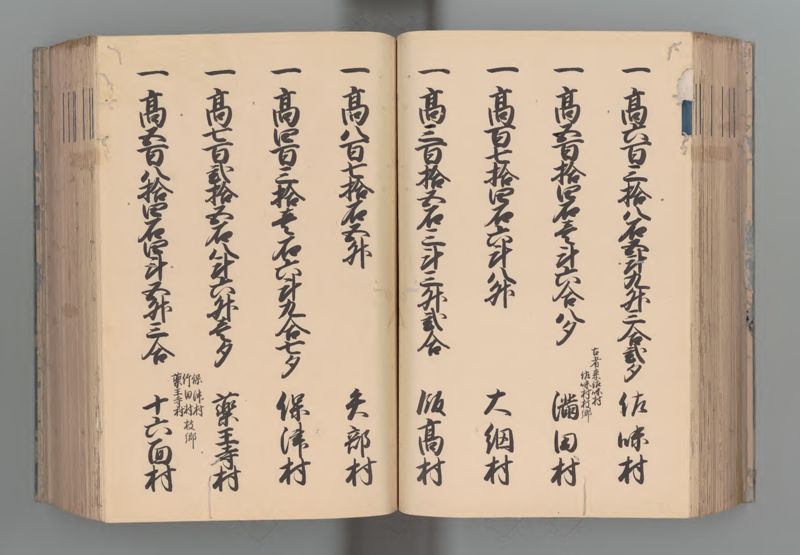 一高六百三拾八石壱斗九升二合弐夕 佐味村
古者東佐味村
佐味村枝郷
一高五百拾四石壱斗六合八夕 満田村
一高百七拾四石六斗八升 大網村
一高三百拾五石三斗三升弐合 阪高村
一高八百七拾石五升 矢部村
一高四百三拾壱石六斗九合七夕 保津村
一高七百弐拾五石八斗六升壱夕 薬王寺村
保津村
竹田村枝郷
薬王寺村
一高五百八拾四石四斗五升三合 十六面村